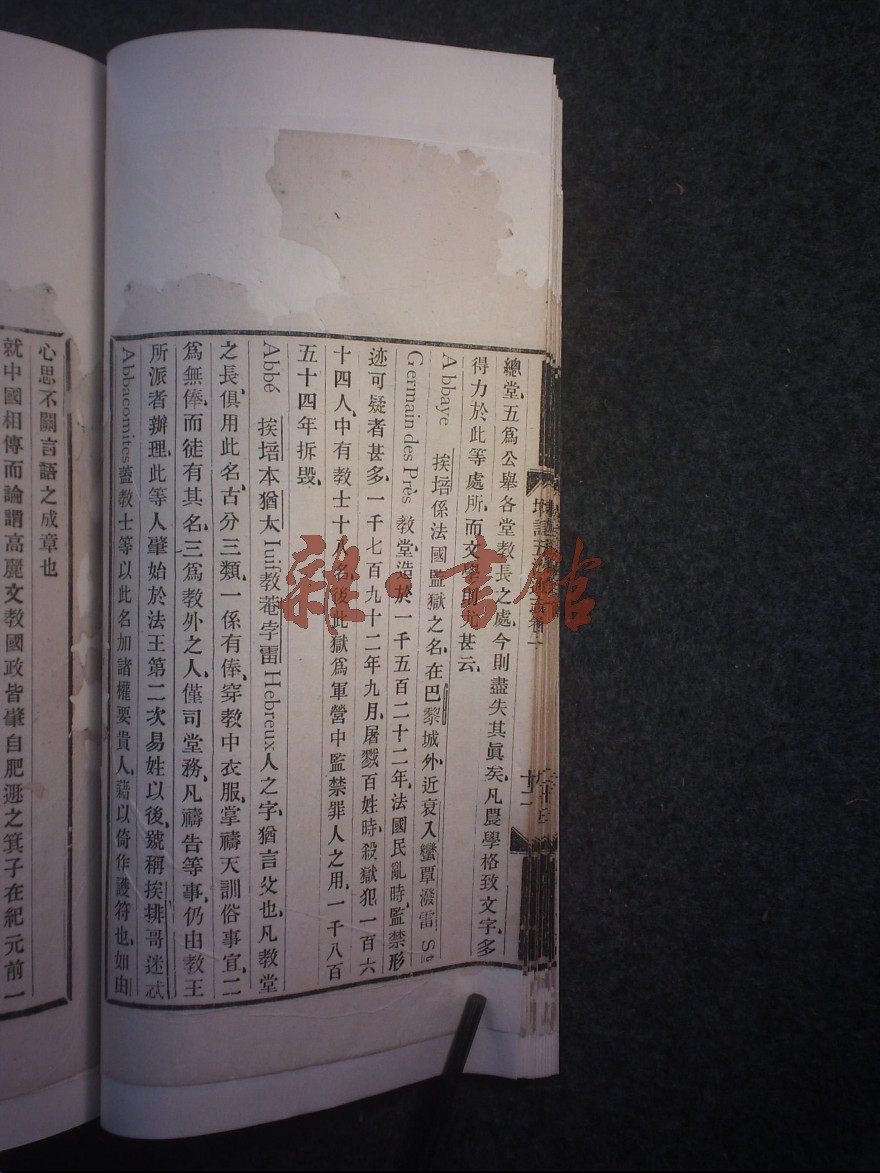 總堂、五爲公舉各堂教長之處、今則盡失其眞矣、凡農學格致文字、多
得力於此等處所、而文學則尤甚云、
Abbaye 挨培係法國監獄之名、在巴黎城外、近哀入蠻覃潑雷 St
Germain des Près 教堂、造於一千五百二十二年、法國民亂時、監禁形
迹可疑者甚多、一千七百九十二年九月、屠戮百姓時、殺獄犯一百六
十四人、中有教士十八名、後此獄爲軍營中監禁罪人之用、一千八百
五十四年拆毀、
Abbé 挨培本猶太 Iuif 教菴孛雷 Hebreux 人之字、猶言父也、凡教堂
之長、俱用此名、古分三類、一係有俸、穿教中衣服、掌禱天訓俗事宜、二
爲無俸、而徒有其名、三爲教外之人、僅司堂務、凡禱告等事、仍由教王
所派者辦理、此等人肇始於法王第二次易姓以後、號稱挨排哥迷忒
Abbacomites 蓋教士等以此名加諸權要貴人、藉以倚作護符也、如由
心思不關言語之成章也
就中國相傳而論、謂高麗文教國政、皆肇自肥遯之箕子、在紀元前一
雜·書館